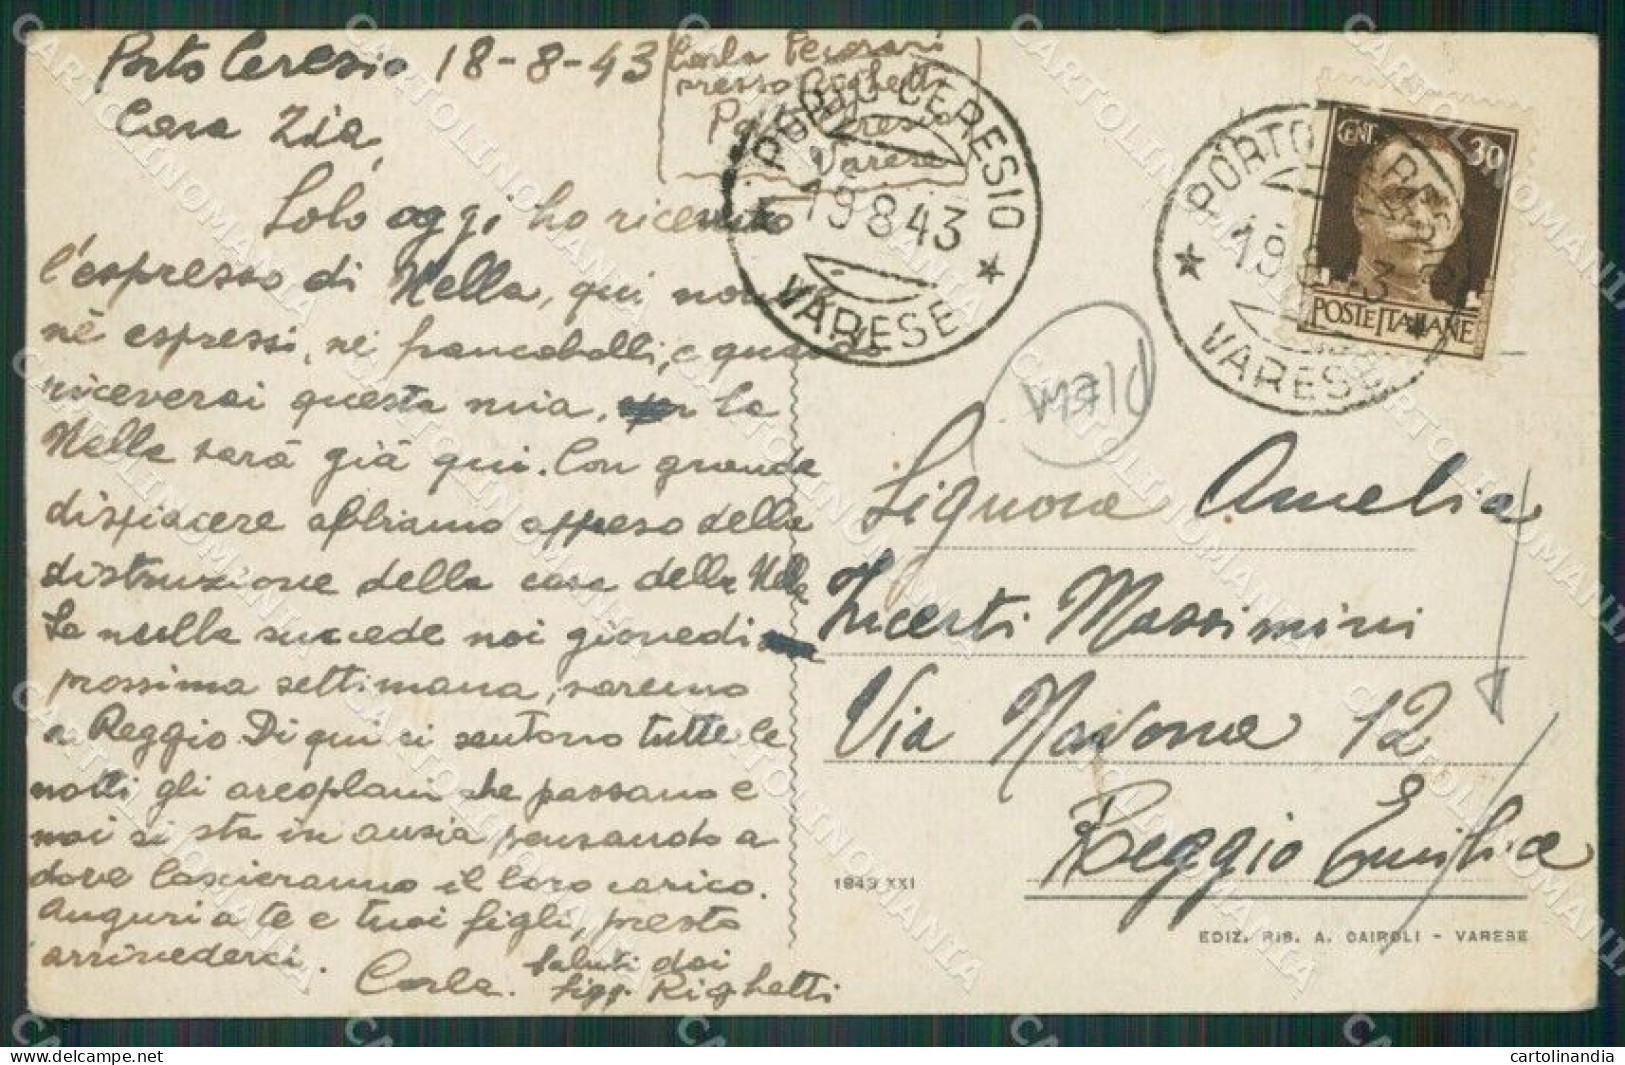 Porto Ceresio 18-8-43
Carla Pecorari
presso Righetti
Porto Ceresio
Varese
Cara Zia,
Solo oggi ho ricevuto
l'espresso di Nella, qui non
nè espressi, nè francobolli, e quando
riceverai questa mia, la
Nella sarà già qui. Con grande
dispiacere abbiamo appreso della
distruzione della casa della Nella
Se nulla succede noi giovedi
prossima settimana, saremo
a Reggio. Di qui si sentono tutte le
notti gli areoplani che passano e
noi si sta in ansia pensando a
dove lascieranno il loro carico.
Auguri a te e tuoi figli, presto
arrivederci.
Carla.
Saluti dai
Sigg. Righetti
PORTO CERESIO
19 8 43
VARESE
PORTO CERESIO
19 8 43
VARESE
CENT. 30
POSTE ITALIANE
Signora Amelia
Incerti Massimini
Via Navona 12
Reggio Emilia
1943 XXI
EDIZ. RIS. A. CAIROLI - VARESE
CARTOLINOMANIA
cartolinandia